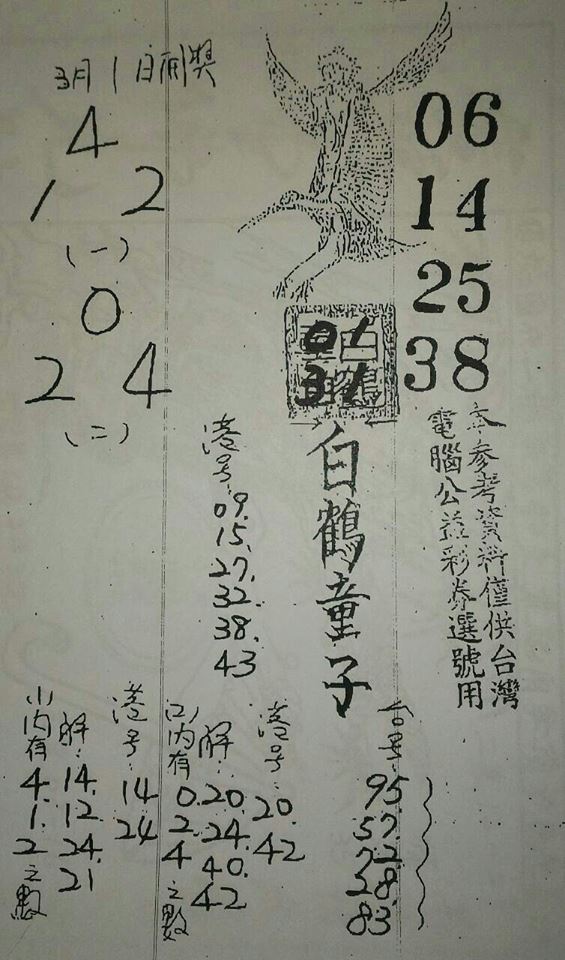 3月1日開獎
4
1 2
(一)
0
2 4
(二)
06
14
25
38
01
31
白鶴童子
本參考資料僅供台灣
電腦公益彩券選號用
港号:
09.
15.
27.
32.
38.
43
台号:
95.
57.
72.
28.
83
港号:
20.
42
解:
20.
24.
40.
42
(二)内有
0.
2.
4
之數
港号:
14
24
解:
14.
12.
24.
21
(一)内有
4.
1.
2
之數